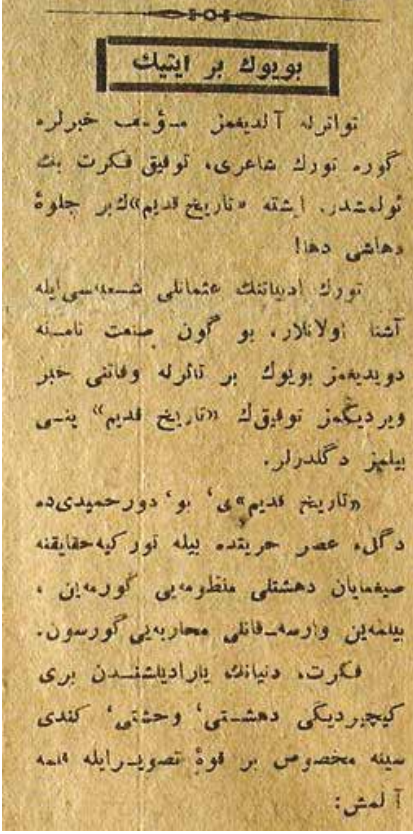 بویوك بر ایتیك
تواترله آلدیغمز مؤسف خبرلره
گوره تورك شاعری، توفیق فكرت بك
ئولمشدر. ایشته «تاریخ قدیم»ك بر جلوۀ
دهاشی دها!
تورك ادبیاتنك عثمانلی شعبه‌سی‌ایله
آشنا اولانلار، بو گون صنعت نامنه
دویدیغمز بویوك بر تاثرله وفاتنی خبر
ویردیگمز توفیق‌ك «تاریخ قدیم» ینی
بیلمز دگلدرلر.
«تاریخ قدیم»ی، بو، دورحمیدی‌ده
دگل، عصر حریتده بیله تورکیه‌حقایقنه
صیغمایان دهشتلی منظومه‌یی گورمه‌ین،
بیلمه‌ین وارسه‌ـ قانلی محاربه‌یی گورسون.
فكرت، دنیانك یارادیلشندن بری
كیچیردیگی دهشتی، وحشتی، كندی
سینه مخصوص بر قوۀ تصویرایله قلمه
آلمش: